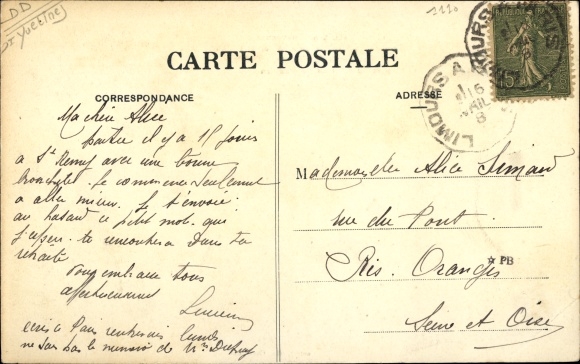 DD
St Yveline
CARTE POSTALE
CORRESPONDANCE
ADRESSE
LIMOURS A
16
8
Ma chère Alice
partie il y a 15 jours
a St Remy avec une bonne
Bronchite. Je commence seulement
a aller mieux. Je t'envoie
au hasard ce petit mot qui
j'espère te rencontrera dans ta
retraite
vous embrasse tous
affectueusement
Lucien
écris a Paris lundi
ne sais pas le numéro de
Mademoiselle Alice Simard
rue du Pont
Ris. Orangis
PB
Seine et Oise